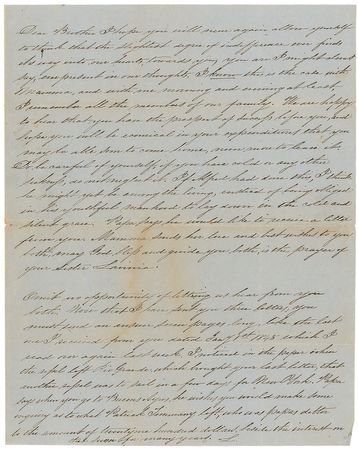 Dear Brother I hope you will never again allow yourself
to think that the slightest sign of indifference ever finds
its way into our hearts towards you, you are I might almost
say, ever present in our thoughts, I know this is the case with
Mamma, and with me morning and evening at least,
I remember all the members of our family. We are happy
to hear that you have the prospect of success before you, and
hope you will be economical in your expenditures that you
may be able soon to come home, never more to leave it.
Do be careful of yourself, if you have cold or any other
sickness, do not neglect it. If Alfred had done this, I think
he might yet be among the living, instead of being obliged
in his youthful manhood to lay down in the cold and
silent grave. Papa says he would like to receive a letter
from you Mamma sends her love and best wishes to you
both, may God bless and guide you both, is the prayer of
your sister Lavinia.
Omit no opportunity of letting us hear from you
both. Now that I have sent you three letters, you
must send an answer seven pages long, like the last
one I received from you dated Jany 1st 1848 which I
read over again last week. I noticed in the paper when
the vessel left Rio Grande, which brought your last letter, that
another vessel was to sail in a few days for New York. Papa
says when you go to Buenos Ayres, he wishes you would make some
enquiry as to what Patrick Fleming left, who was papas debtor
to the amount of twenty nine hundred dollars, beside the interest on
the same for many years. L